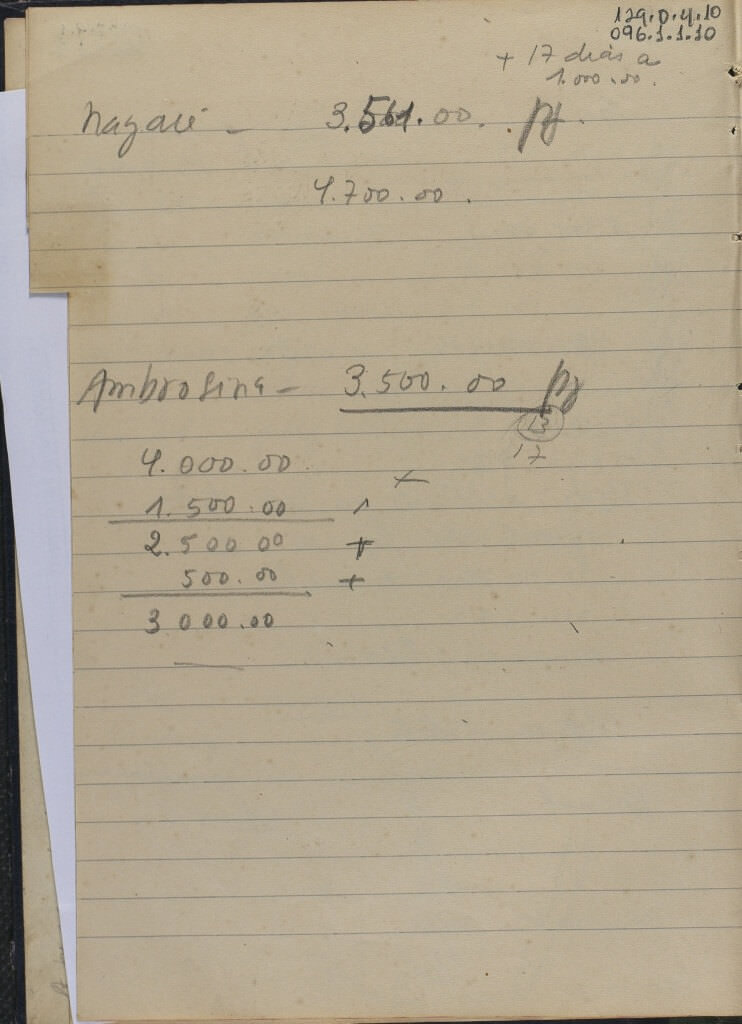 129.D.4.10
096.1.1.10
+ 17 dias a
1.000.00.
Nazaré - 3.561.00. pg.
4.700.00.
Ambrosina - 3.500.00 pg
13
17
4.000.00.
1.500.00
2.500 00 +
500.00 +
3 000.00